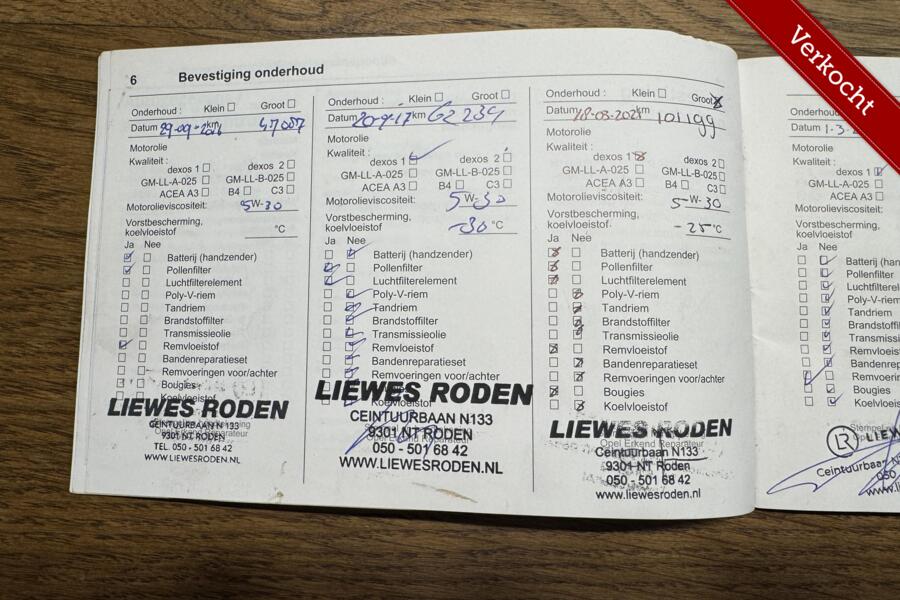 Verkocht
6 Bevestiging onderhoud
Onderhoud : Klein Groot
Datum 29-09-2016 km 47087
Motorolie
Kwaliteit :
dexos 1 dexos 2
GM-LL-A-025 GM-LL-B-025
ACEA A3 B4 C3
Motorolieviscositeit: 5W-30
Vorstbescherming,
koelvloeistof °C
Ja Nee
Batterij (handzender)
Pollenfilter
Luchtfilterelement
Poly-V-riem
Tandriem
Brandstoffilter
Transmissieolie
Remvloeistof
Bandenreparatieset
Remvoeringen voor/achter
Bougies
Koelvloeistof
LIEWES RODEN
CEINTUURBAAN N133
9301 NT RODEN
TEL. 050 - 501 68 42
WWW.LIEWESRODEN.NL
Onderhoud : Klein Groot
Datum 20-9-17 km 62234
Motorolie
Kwaliteit :
dexos 1 dexos 2
GM-LL-A-025 GM-LL-B-025
ACEA A3 B4 C3
Motorolieviscositeit: 5W-30
Vorstbescherming,
koelvloeistof -30 °C
Ja Nee
Batterij (handzender)
Pollenfilter
Luchtfilterelement
Poly-V-riem
Tandriem
Brandstoffilter
Transmissieolie
Remvloeistof
Bandenreparatieset
Remvoeringen voor/achter
Koelvloeistof
LIEWES RODEN
CEINTUURBAAN N133
Opel Erkend Reparateur
9301 NT RODEN
050 - 501 68 42
WWW.LIEWESRODEN.NL
Onderhoud : Klein Groot
Datum 18-03-2021 km 101199
Motorolie
Kwaliteit :
dexos 1 dexos 2
GM-LL-A-025 GM-LL-B-025
ACEA A3 B4 C3
Motorolieviscositeit: 5-W-30
Vorstbescherming,
koelvloeistof -25 °C
Ja Nee
Batterij (handzender)
Pollenfilter
Luchtfilterelement
Poly-V-riem
Tandriem
Brandstoffilter
Transmissieolie
Remvloeistof
Bandenreparatieset
Remvoeringen voor/achter
Bougies
Koelvloeistof
LIEWES RODEN
Opel Erkend Reparateur
Ceintuurbaan N133
9301 NT Roden
050 - 501 68 42
www.liewesroden.nl
Onderhoud :
Datum 1-3-2
Motorolie
Kwaliteit :
dexos 1
GM-LL-A-025
ACEA A3
Motorolieviscositeit:
Vorstbescherming,
koelvloeistof
Ja Nee
Batterij (han
Pollenfilter
Luchtfilterel
Poly-V-riem
Tandriem
Brandstoffil
Transmissi
Remvloeist
Bandenrep
Remvoerin
Bougies
Koelvloeis
LR LIEW
Ceintuurbaan N
050
www.li